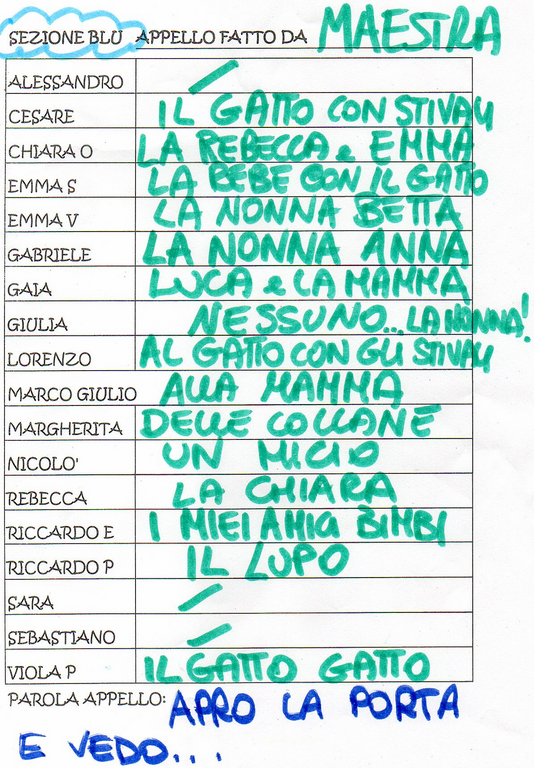 SEZIONE BLU APPELLO FATTO DA MAESTRA
ALESSANDRO /
CESARE IL GATTO CON STIVALI
CHIARA O LA REBECCA e EMMA
EMMA S LA BEBE CON IL GATTO
EMMA V LA NONNA BETTA
GABRIELE LA NONNA ANNA
GAIA LUCA e LA MAMMA
GIULIA NESSUNO... LA NONNA!
LORENZO AL GATTO CON GLI STIVALI
MARCO GIULIO ALLA MAMMA
MARGHERITA DELLE COLLANE
NICOLO' UN MICIO
REBECCA LA CHIARA
RICCARDO E I MIEI AMICI BIMBI
RICCARDO P IL LUPO
SARA /
SEBASTIANO /
VIOLA P IL GATTO GATTO
PAROLA APPELLO: APRO LA PORTA
E VEDO...